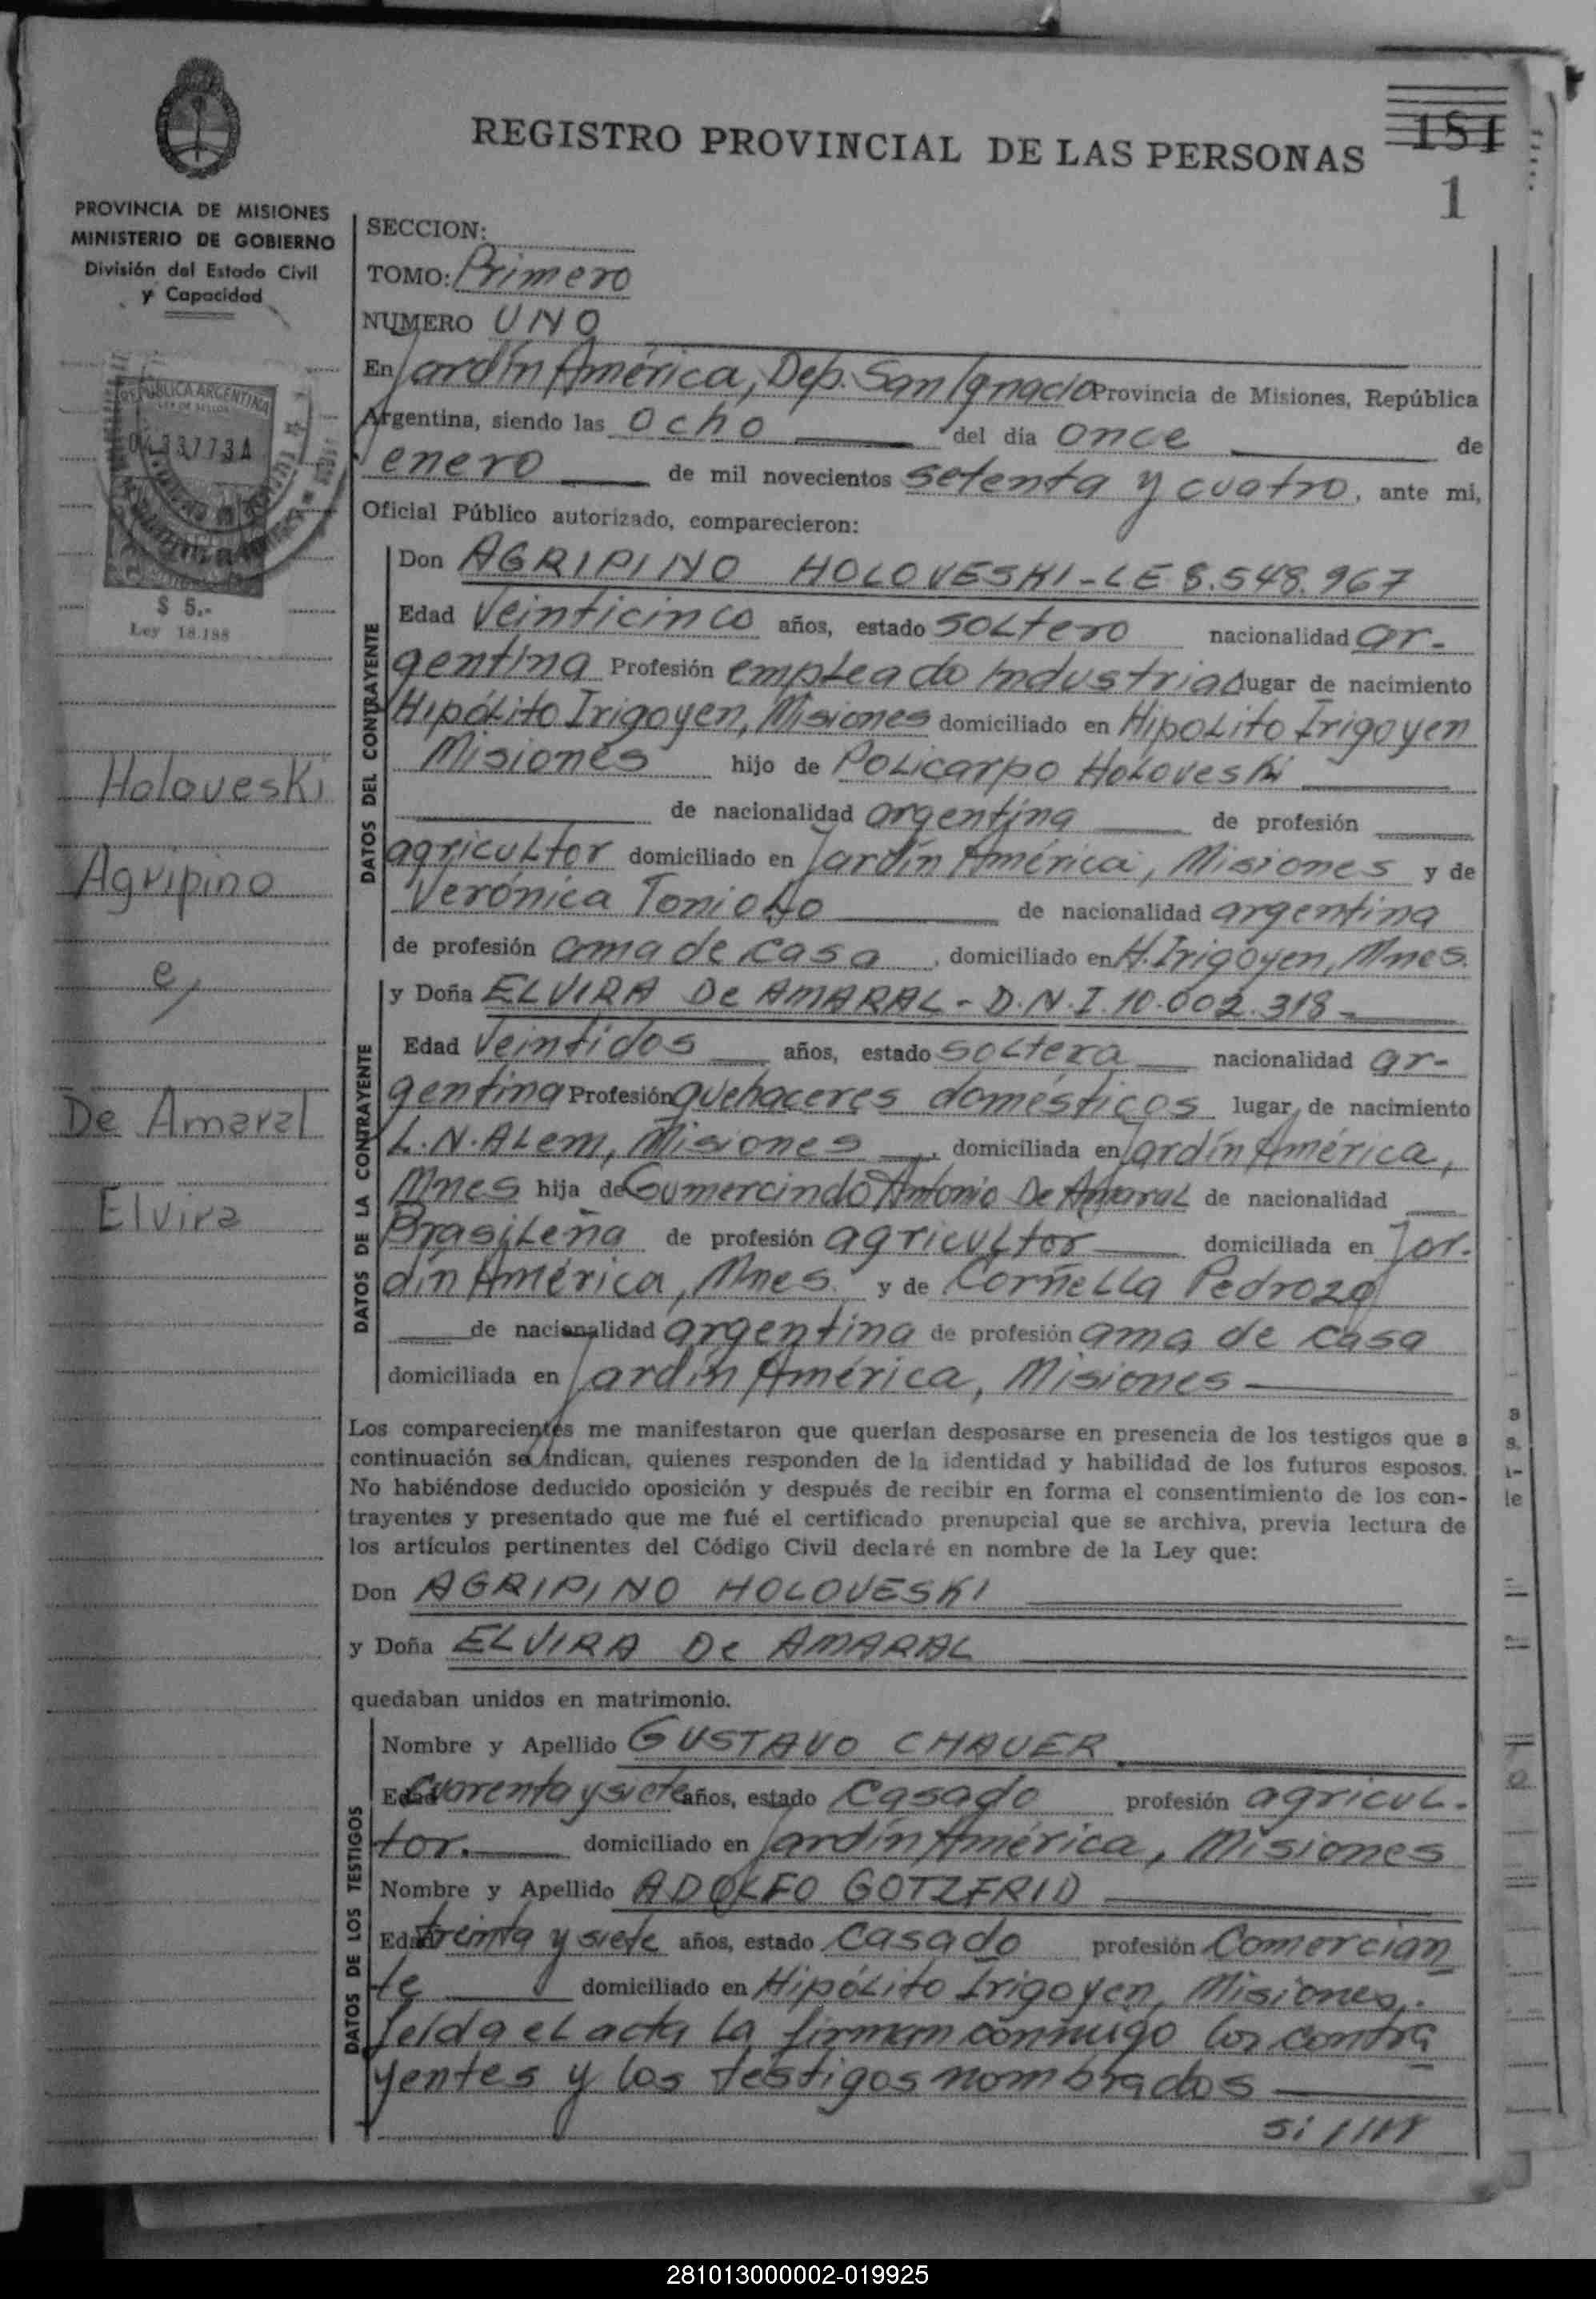 REGISTRO PROVINCIAL DE LAS PERSONAS
151
1
PROVINCIA DE MISIONES
MINISTERIO DE GOBIERNO
División del Estado Civil
y Capacidad
REPUBLICA ARGENTINA
LEY DE SELLOS
$ 5.-
Ley 18.188
Holoveski
Agripino
e,
De Amaral
Elvira
SECCION:
TOMO: Primero
NUMERO UNO
En Jardín América, Dep. San Ignacio Provincia de Misiones, República
Argentina, siendo las ocho del día once de
enero de mil novecientos setenta y cuatro, ante mi,
Oficial Público autorizado, comparecieron:
DATOS DEL CONTRAYENTE
Don AGRIPINO HOLOVESKI - LE 8.548.967
Edad Veinticinco años, estado soltero nacionalidad ar-
gentina Profesión empleado Industrial lugar de nacimiento
Hipólito Irigoyen, Misiones domiciliado en Hipolito Irigoyen
Misiones hijo de Policarpo Holoveski
de nacionalidad argentina de profesión
agricultor domiciliado en Jardín América, Misiones y de
Verónica de nacionalidad argentina
de profesión ama de casa, domiciliado en H. Irigoyen, Mnes.
DATOS DE LA CONTRAYENTE
y Doña ELVIRA De AMARAL - D.N.I. 10.002.318-
Edad Veintidos años, estado soltera nacionalidad ar-
gentina Profesión quehaceres domésticos lugar de nacimiento
L.N. Alem, Misiones, domiciliada en Jardín América,
Mnes hija de Gumercindo Antonio De Amaral de nacionalidad
Brasileña de profesión agricultor domiciliada en Jar-
dín América, Mnes. y de Pedrozo
de nacionalidad argentina de profesión ama de casa
domiciliada en Jardín América, Misiones
Los comparecientes me manifestaron que querían desposarse en presencia de los testigos que a
continuación se indican, quienes responden de la identidad y habilidad de los futuros esposos.
No habiéndose deducido oposición y después de recibir en forma el consentimiento de los con-
trayentes y presentado que me fué el certificado prenupcial que se archiva, previa lectura de
los artículos pertinentes del Código Civil declaré en nombre de la Ley que:
Don AGRIPINO HOLOVESKI
y Doña ELVIRA De AMARAL
quedaban unidos en matrimonio.
DATOS DE LOS TESTIGOS
Nombre y Apellido GUSTAVO CHAVER
Edad Cuarenta y siete años, estado Casado profesión agricul-
tor. domiciliado en Jardín América, Misiones
Nombre y Apellido ADOLFO GOTZFRID
Edad treinta y siete años, estado Casado profesión Comercian
te domiciliado en Hipólito Irigoyen, Misiones.
leída el acta la firman conmigo los contra
yentes y los testigos nombrados
281013000002-019925